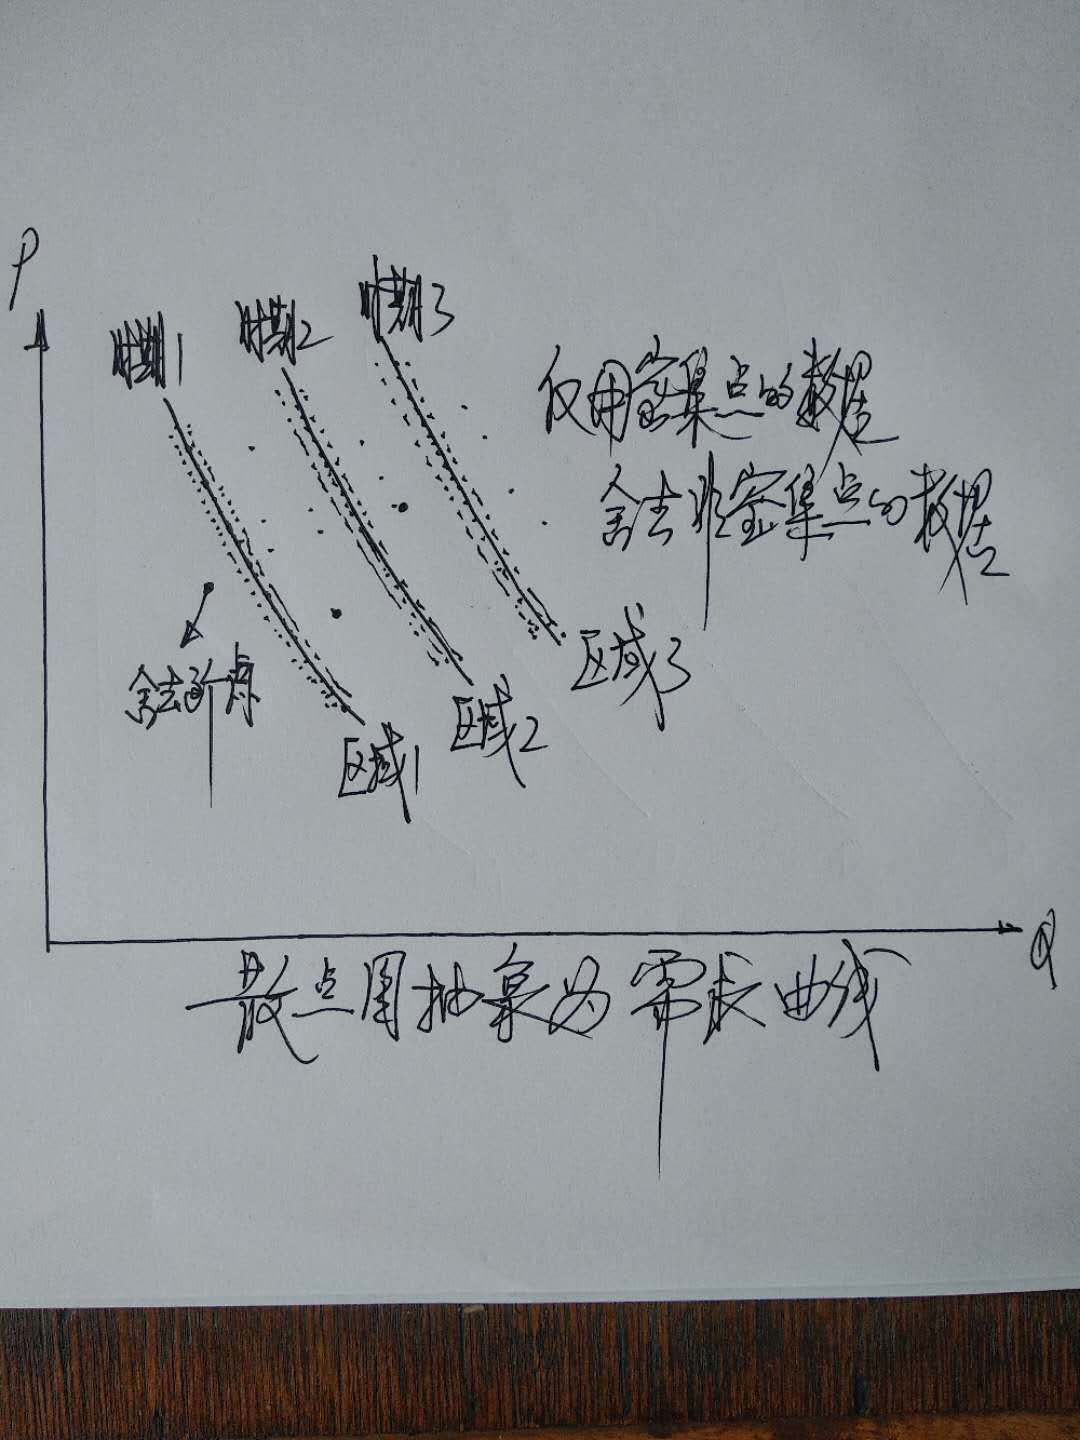 P
时期1
时期2
时期3
仅用密集点的数据
舍去非密集点的数据
舍去散点
区域1
区域2
区域3
Q
散点图抽象为需求曲线